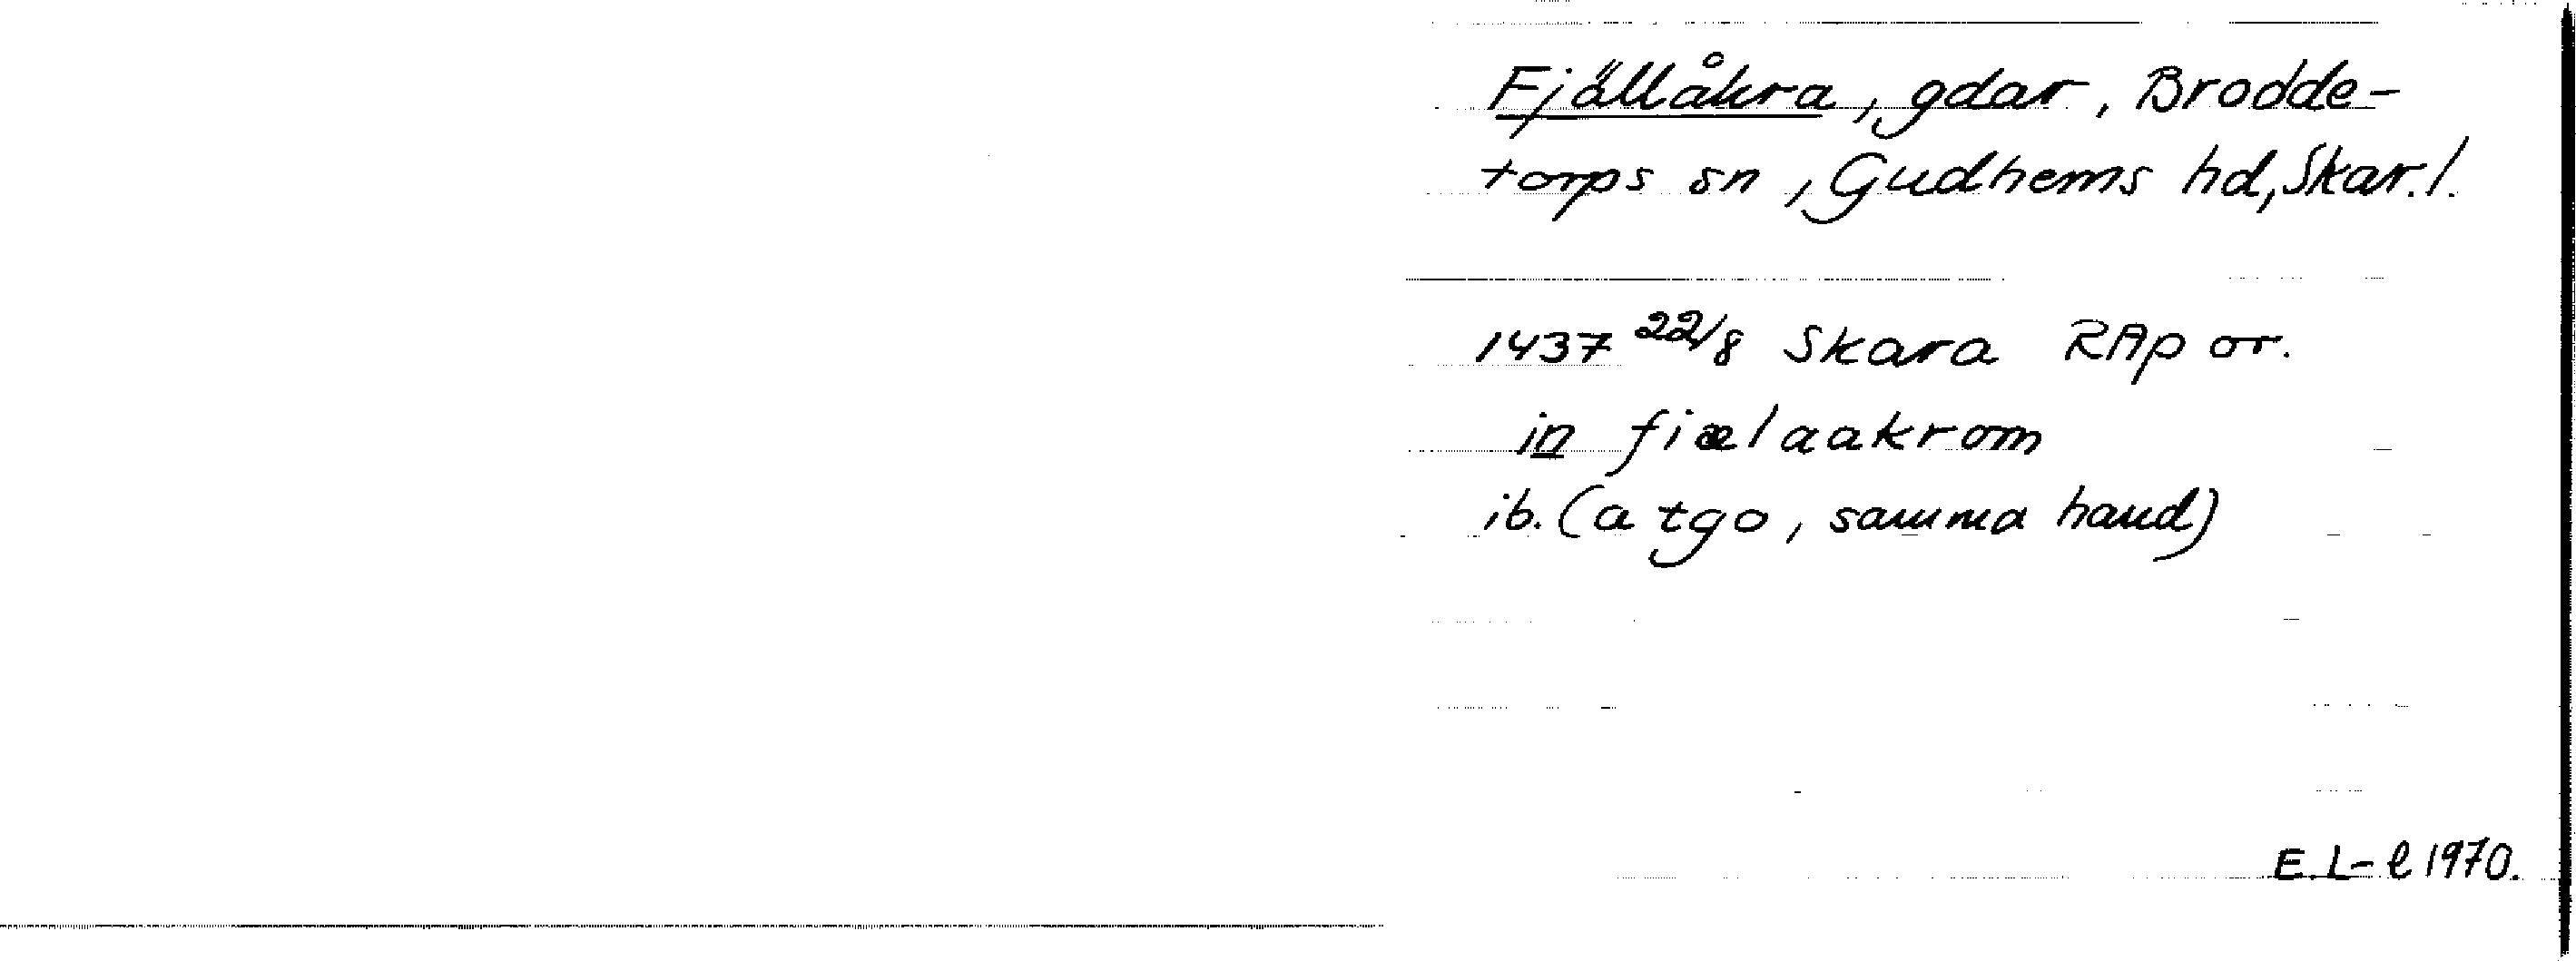 Fjällåkra, gdar, Brodde-
torps sn, Gudhems hd, Skar. l.
1437 22/8 Skara RAp or.
in fiælaakrom
ib. (a tgo, samma hand)
E. L-l 1970.